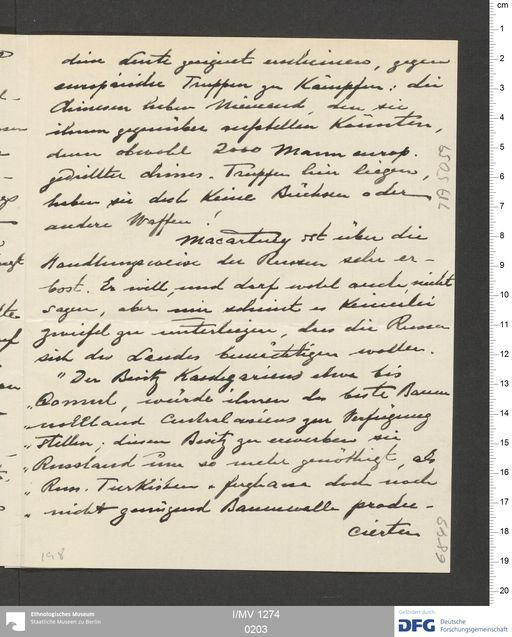 diese Leute geeignet erscheinen, gegen
europäische Truppen zu Kämpfen: die
Chinesen haben Niemand, den sie
ihnen gegenüber aufstellen Könnten,
denn obwohl 2000 Mann europ.
gedrillter chines. Truppen hier liegen,
haben sie doch Keine Büchsen oder
andere Waffen!
Macartney ist über die
Handlungsweise der Russen sehr er-
bost. Er will, und darf wohl auch, nicht
sagen, aber mir scheint es Keinerlei
Zweifel zu unterliegen, dass die Russen
sich des Landes bemächtigen wollen.
"Der Besitz Kaschgariens etwa bis
"Qomul, würde ihnen das beste Baum
"wollland Centralasiens zur Verfügung
"stellen; diesen Besitz zu erwerben sei
"Russland um so mehr genöthigt, als
"Russ. Turkistan + Ferghana doch noch
"nicht genügend Baumwolle produ-
cierten
TA 5059
6849
198
cm
1
2
3
4
5
6
7
8
9
10
11
12
13
14
15
16
17
18
19
20
Ethnologisches Museum
Staatliche Museen zu Berlin
I/MV 1274
0203
Gefördert durch
DFG Deutsche
Forschungsgemeinschaft